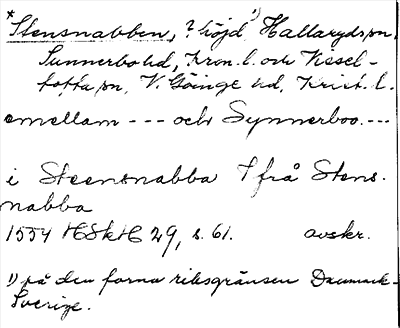 *Stensnabben, ? höjd 1) Hallaryds sn,
Sunnerbo hd, Kron. l. och Vissel-
tofta sn, V. Göinge hd, Krist. l.
emellam --- och Synnerboo. ---
i Steensnabba † från Stens-
nabba
1554 HSkH 29, s. 61. avskr.
1) på den forna riksgränsen Danmark-
Sverige.